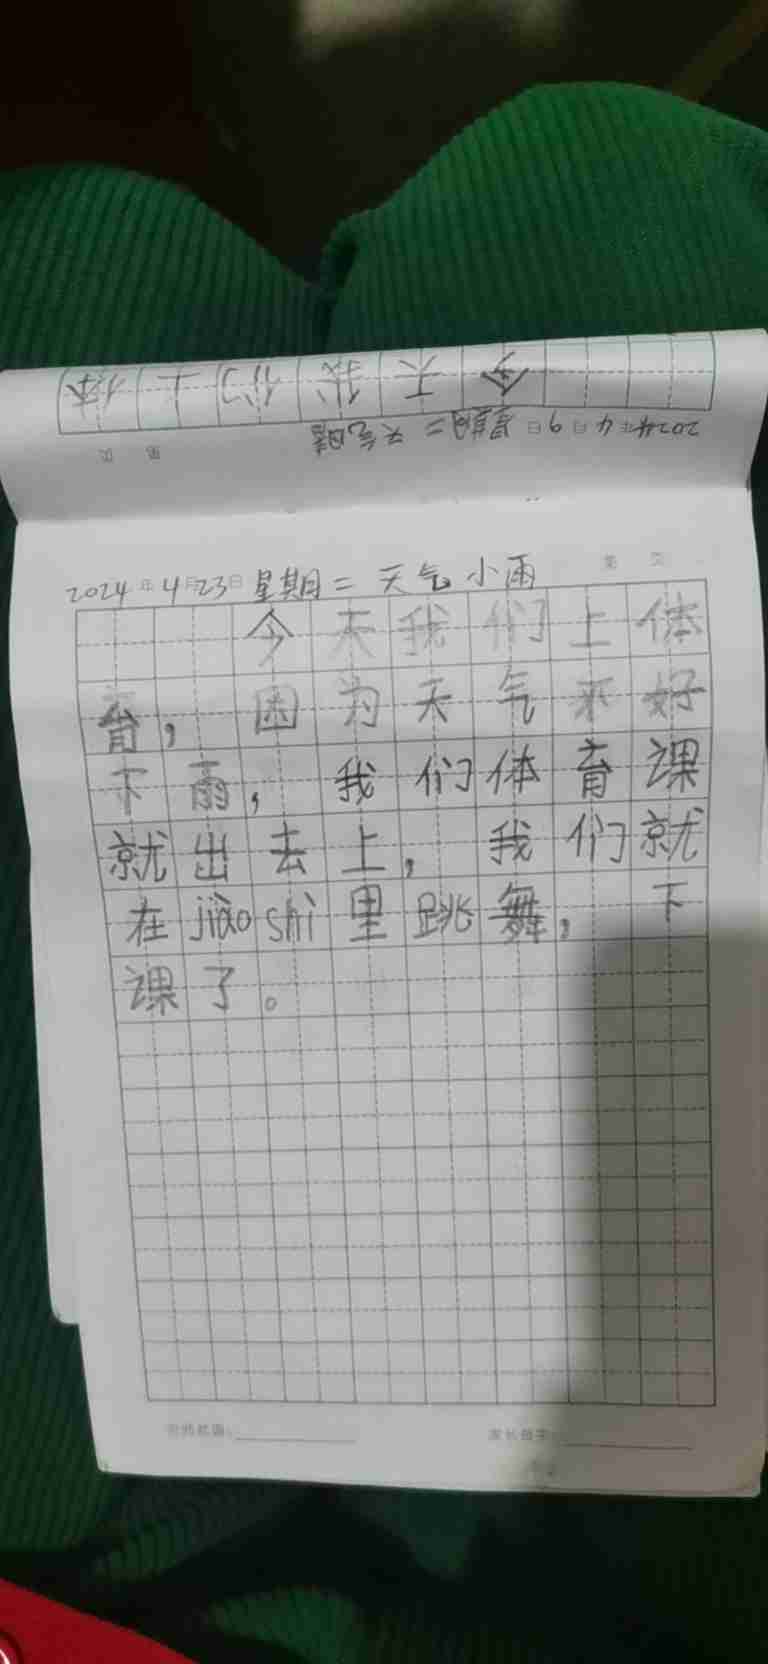 今天我们上体
2024年4月9日 星期二 天气晴
第 页
第 页
2024年4月23日 星期二 天气 小雨
今天我们上体
育，因为天气不好
下雨，我们体育课
就出去上，我们就
在jiào shì里跳舞，下
课了。
家长签字: